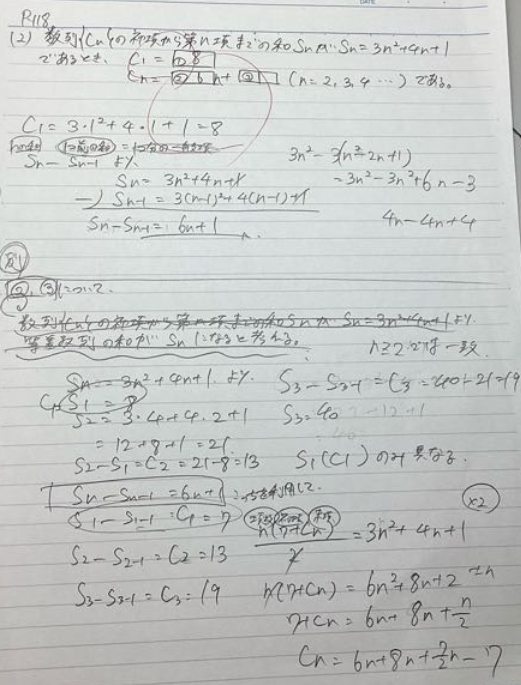 P.118
(2) 数列{Cn}の初項から第n項までの和SnがSn=3n²+4n+1
であるとき、C1=①8
Cn=②6n+③ (n=2,3,4…)である。
C1=3・1²+4・1+1=8
Sn-Sn-1 より
Sn=3n²+4n+1
-) Sn-1=3(n-1)²+4(n-1)+1
Sn-Sn-1=6n+1
3n²-3(n²-2n+1)
=3n²-3n²+6n-3
4n-4n+4
別
②,③について
数列{Cn}の初項から第n項までの和Snが Sn=3n²+4n+1より
等差数列の和がSnになると考える。
n≥2では一致
Sn=3n²+4n+1より
C1 S1=8
S2=3・4+4・2+1
=12+8+1=21
S2-S1=C2=21-8=13
S3-S3-1=C3=40-21=19
S3=40
S1(C1)のみ異なる
Sn-Sn-1=6n+1 を利用して
S1-S1-1=C1=7
S2-S2-1=C2=13
S3-S3-1=C3=19
n(7+Cn)/2=3n²+4n+1
×2
n(7+Cn)=6n²+8n+2
7+Cn=6n+8n+n/2
Cn=6n+8n+n/2-7